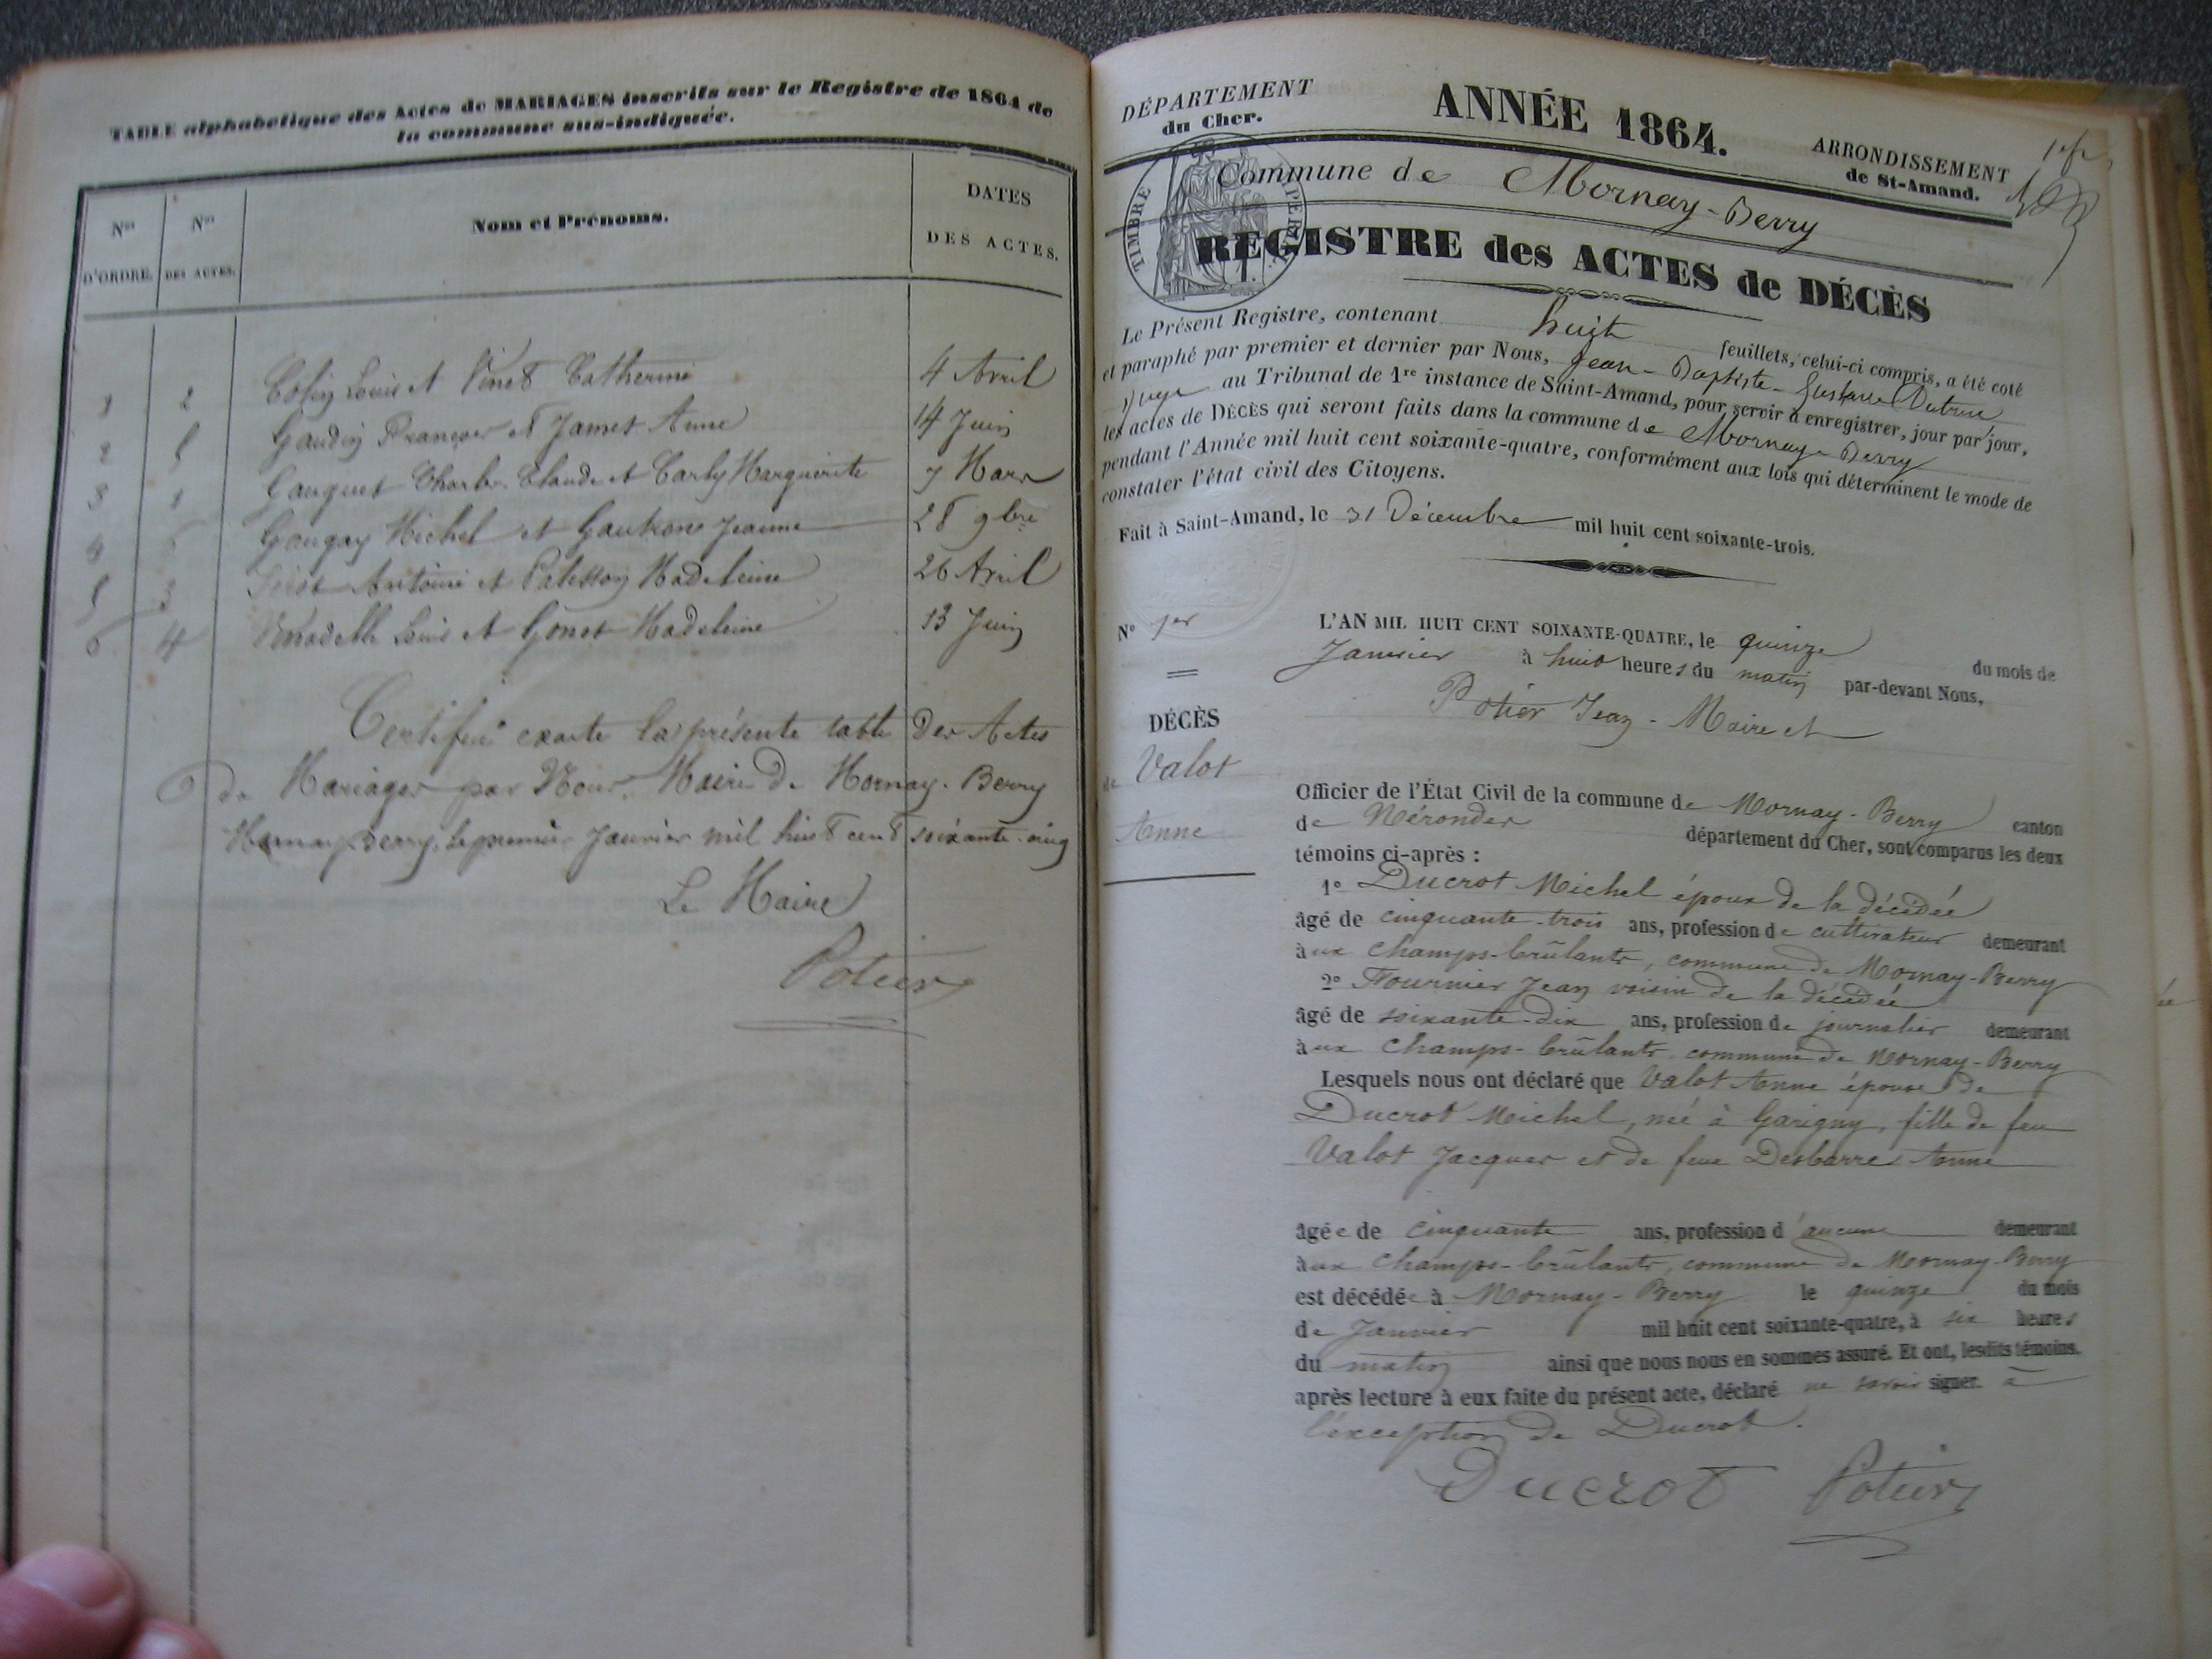 TABLE alphabétique des Actes de MARIAGES inscrits sur le Registre de 1864 de
la commune sus-indiquée.
Nos D'ORDRE.
Nos DES ACTES.
Nom et Prénoms.
DATES DES ACTES.
1 2 Louis et Vinet Catherine 4 Avril
2 5 Gaudin François et Jamet Anne 14 Juin
3 1 Charles Claude et Marguerite 7 Mars
4 6 Gougay Michel et Jeanne 28 9bre
5 3 Antoine et Madeleine 26 Avril
6 4 Louis et Gonet Madeleine 13 Juin
Certifiée exacte la présente table des Actes
de Mariages par Nous, Maire de Mornay-Berry
Mornay-Berry, le premier Janvier mil huit cent soixante-cinq
Le Maire
Potier
DÉPARTEMENT
du Cher.
ANNÉE 1864.
ARRONDISSEMENT
de St-Amand.
TIMBRE IMPÉRIAL
Commune de Mornay-Berry
REGISTRE des ACTES de DÉCÈS
Le Présent Registre, contenant huit feuillets, celui-ci compris, a été coté
et paraphé par premier et dernier par Nous, Jean-Baptiste-Gustave
Juge au Tribunal de 1re instance de Saint-Amand, pour servir à enregistrer, jour par jour,
les actes de DÉCÈS qui seront faits dans la commune de Mornay-Berry
pendant l'Année mil huit cent soixante-quatre, conformément aux lois qui déterminent le mode de
constater l'état civil des Citoyens.
Fait à Saint-Amand, le 31 Décembre mil huit cent soixante-trois.
No 1er
DÉCÈS
de Valot
Anne
L'AN MIL HUIT CENT SOIXANTE-QUATRE, le quinze du mois de
Janvier à huit heures du matin par-devant Nous,
Potier Jean - Maire et
Officier de l'État Civil de la commune de Mornay-Berry canton
de Nérondes département du Cher, sont comparus les deux
témoins ci-après :
1o Ducrot Michel époux de la décédée
âgé de cinquante-trois ans, profession de cultivateur demeurant
aux Champs-brûlants, commune de Mornay-Berry
2o Fournier Jean voisin de la décédée
âgé de soixante-dix ans, profession de journalier demeurant
aux Champs-brûlants commune de Mornay-Berry
Lesquels nous ont déclaré que Valot Anne épouse de
Ducrot Michel, née à Garigny, fille de feu
Valot Jacques et de feue Desbarres Anne
âgée de cinquante ans, profession d'aucune demeurant
aux Champs-brûlants, commune de Mornay-Berry
est décédée à Mornay-Berry le quinze du mois
de Janvier mil huit cent soixante-quatre, à six heures
du matin ainsi que nous nous en sommes assuré. Et ont, lesdits témoins,
après lecture à eux faite du présent acte, déclaré ne savoir signer à
l'exception de Ducrot.
Ducrot Potier